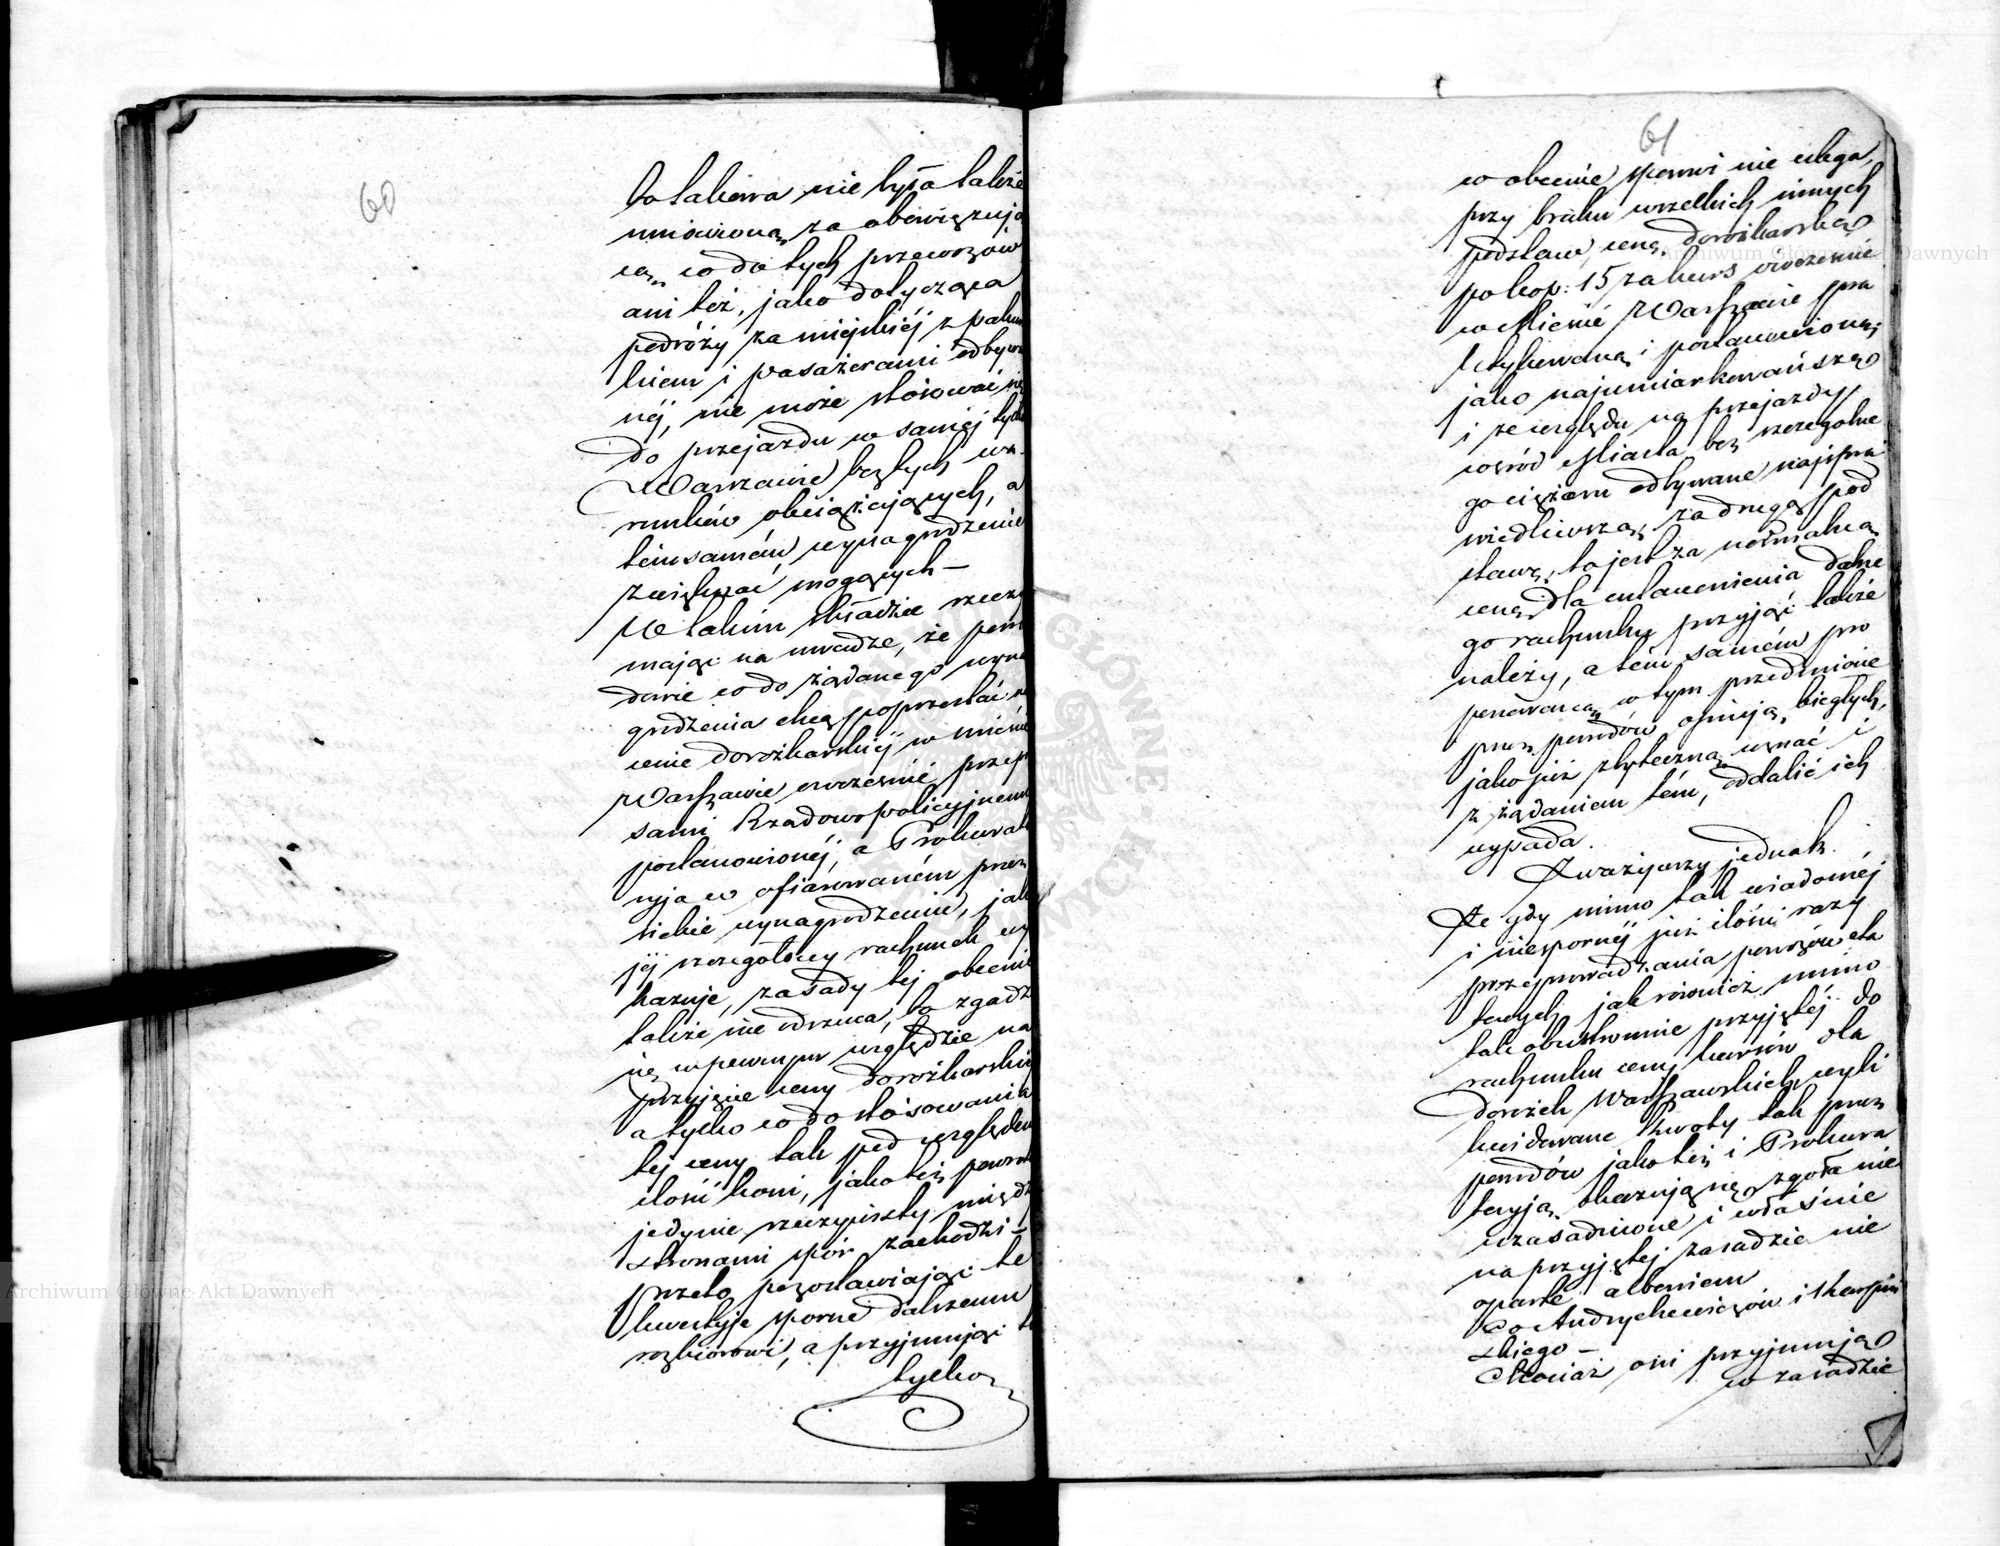 60
bo takowa nie była także
umówioną za obowiązują
cą, co do tych przewozów
ani też, jako dotycząca
podróży za miejskiéj z pakun
kiem i pasażerami odbywa
néj, nie może stósować się
do przejazdu w saméj tylko
Warszawie bez tych wa-
runków obciążających, a
témsamém wynagrodzenie
zwiększać mogących —
W takim składzie rzeczy
mając na uwadze, że pow
dowie co do żądanego wyna
grodzenia chcą poprzestać na
cenie dorożkarskiéj w mieście
Warszawie wcześnie przepi
sami Rządowo policyjnemi
postanowionéj, a Prokurato
ryja w ofiarowaném przez
siebie wynagrodzeniu, jak
jéj szczegółowy rachunek wy
kazuje, zasady téj obecnie
także nie odrzuca, bo zgadza
się w pewnym względzie na
przyjęcie ceny dorożkarskiéj
a tylko co do stósowania
téj ceny tak pod względem
ilości koni, jakoteż powrotu
jedynie rzeczywisty między
stronami spór zachodzi —
przeto pozostawiając te
kwestyje sporne dalszemu
rozbiorowi, a przyjmując to
tylko
61
co obecnie sporowi nie ulega,
przy braku wszelkich innych
podstaw, cenę dorożkarską
po kop: 15 za kurs wcześnie
w Mieście Warszawie pra
ktykowaną i postanowioną,
jako najumiarkowańszą
i ze względu na przejazdy
wśród Miasta bez szczególne
go ciężaru odbywane najspra
wiedliwszą, za drugą pod
stawę, to jest za normalną
cenę dla ustanowienia dalsze
go rachunku przyjąć także
należy, a tém samém pro
ponowaną w tym przedmiocie
przez powodów opinię biegłych,
jako już zbyteczną uznać i
z żądaniem tém, oddalić ich
wypada.
Zważywszy jednak.
Że gdy mimo tak wiadoméj
i niespornéj już ilości razy
przeprowadzania powozów eta
towych jak również mimo
tak obustronnie przyjętéj do
rachunku ceny kursów dla
dorożek Warszawskich, wyli
kwidowane kwoty tak przez
powodów jakoteż i Prokura
toryją okazują się zgoła nie
uzasadnione i właśnie
na przyjętéj zasadzie nie
oparte albowiem
Co Andrychewiczów i Skarpiń
skiego —
Chociaż oni przyjmują
w zasadzie